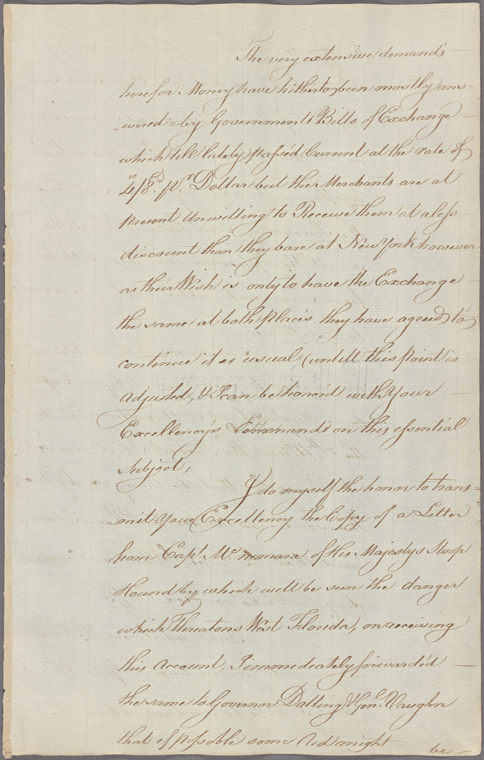 The very extensive demands
here for Money have hitherto been mostly ans-
-wered by Governments Bills of Exchange
which till lately passed Current at the rate of
4/8d. pr. Dollar but the Merchants are at
present unwilling to Receive them at a less
discount than they bare at New York however
as their Wish is only to have the Exchange
the same at both places they have agreed to
continue it as usual untill this point is
adjusted, & I can be honor'd with Your
Excellency's Commands on this essential
subject,
I do myself the honor to trans-
mit your Excellency the Copy of a Letter
from Capt. Mc. namara of His Majestys Sloop
Hound by which will be seen the danger
which Threatens West Florida, on receiving
this account, I immediately forwarded
the same to Governor Dalling & Genl. Vaughn
that if possoble some Aid might
be